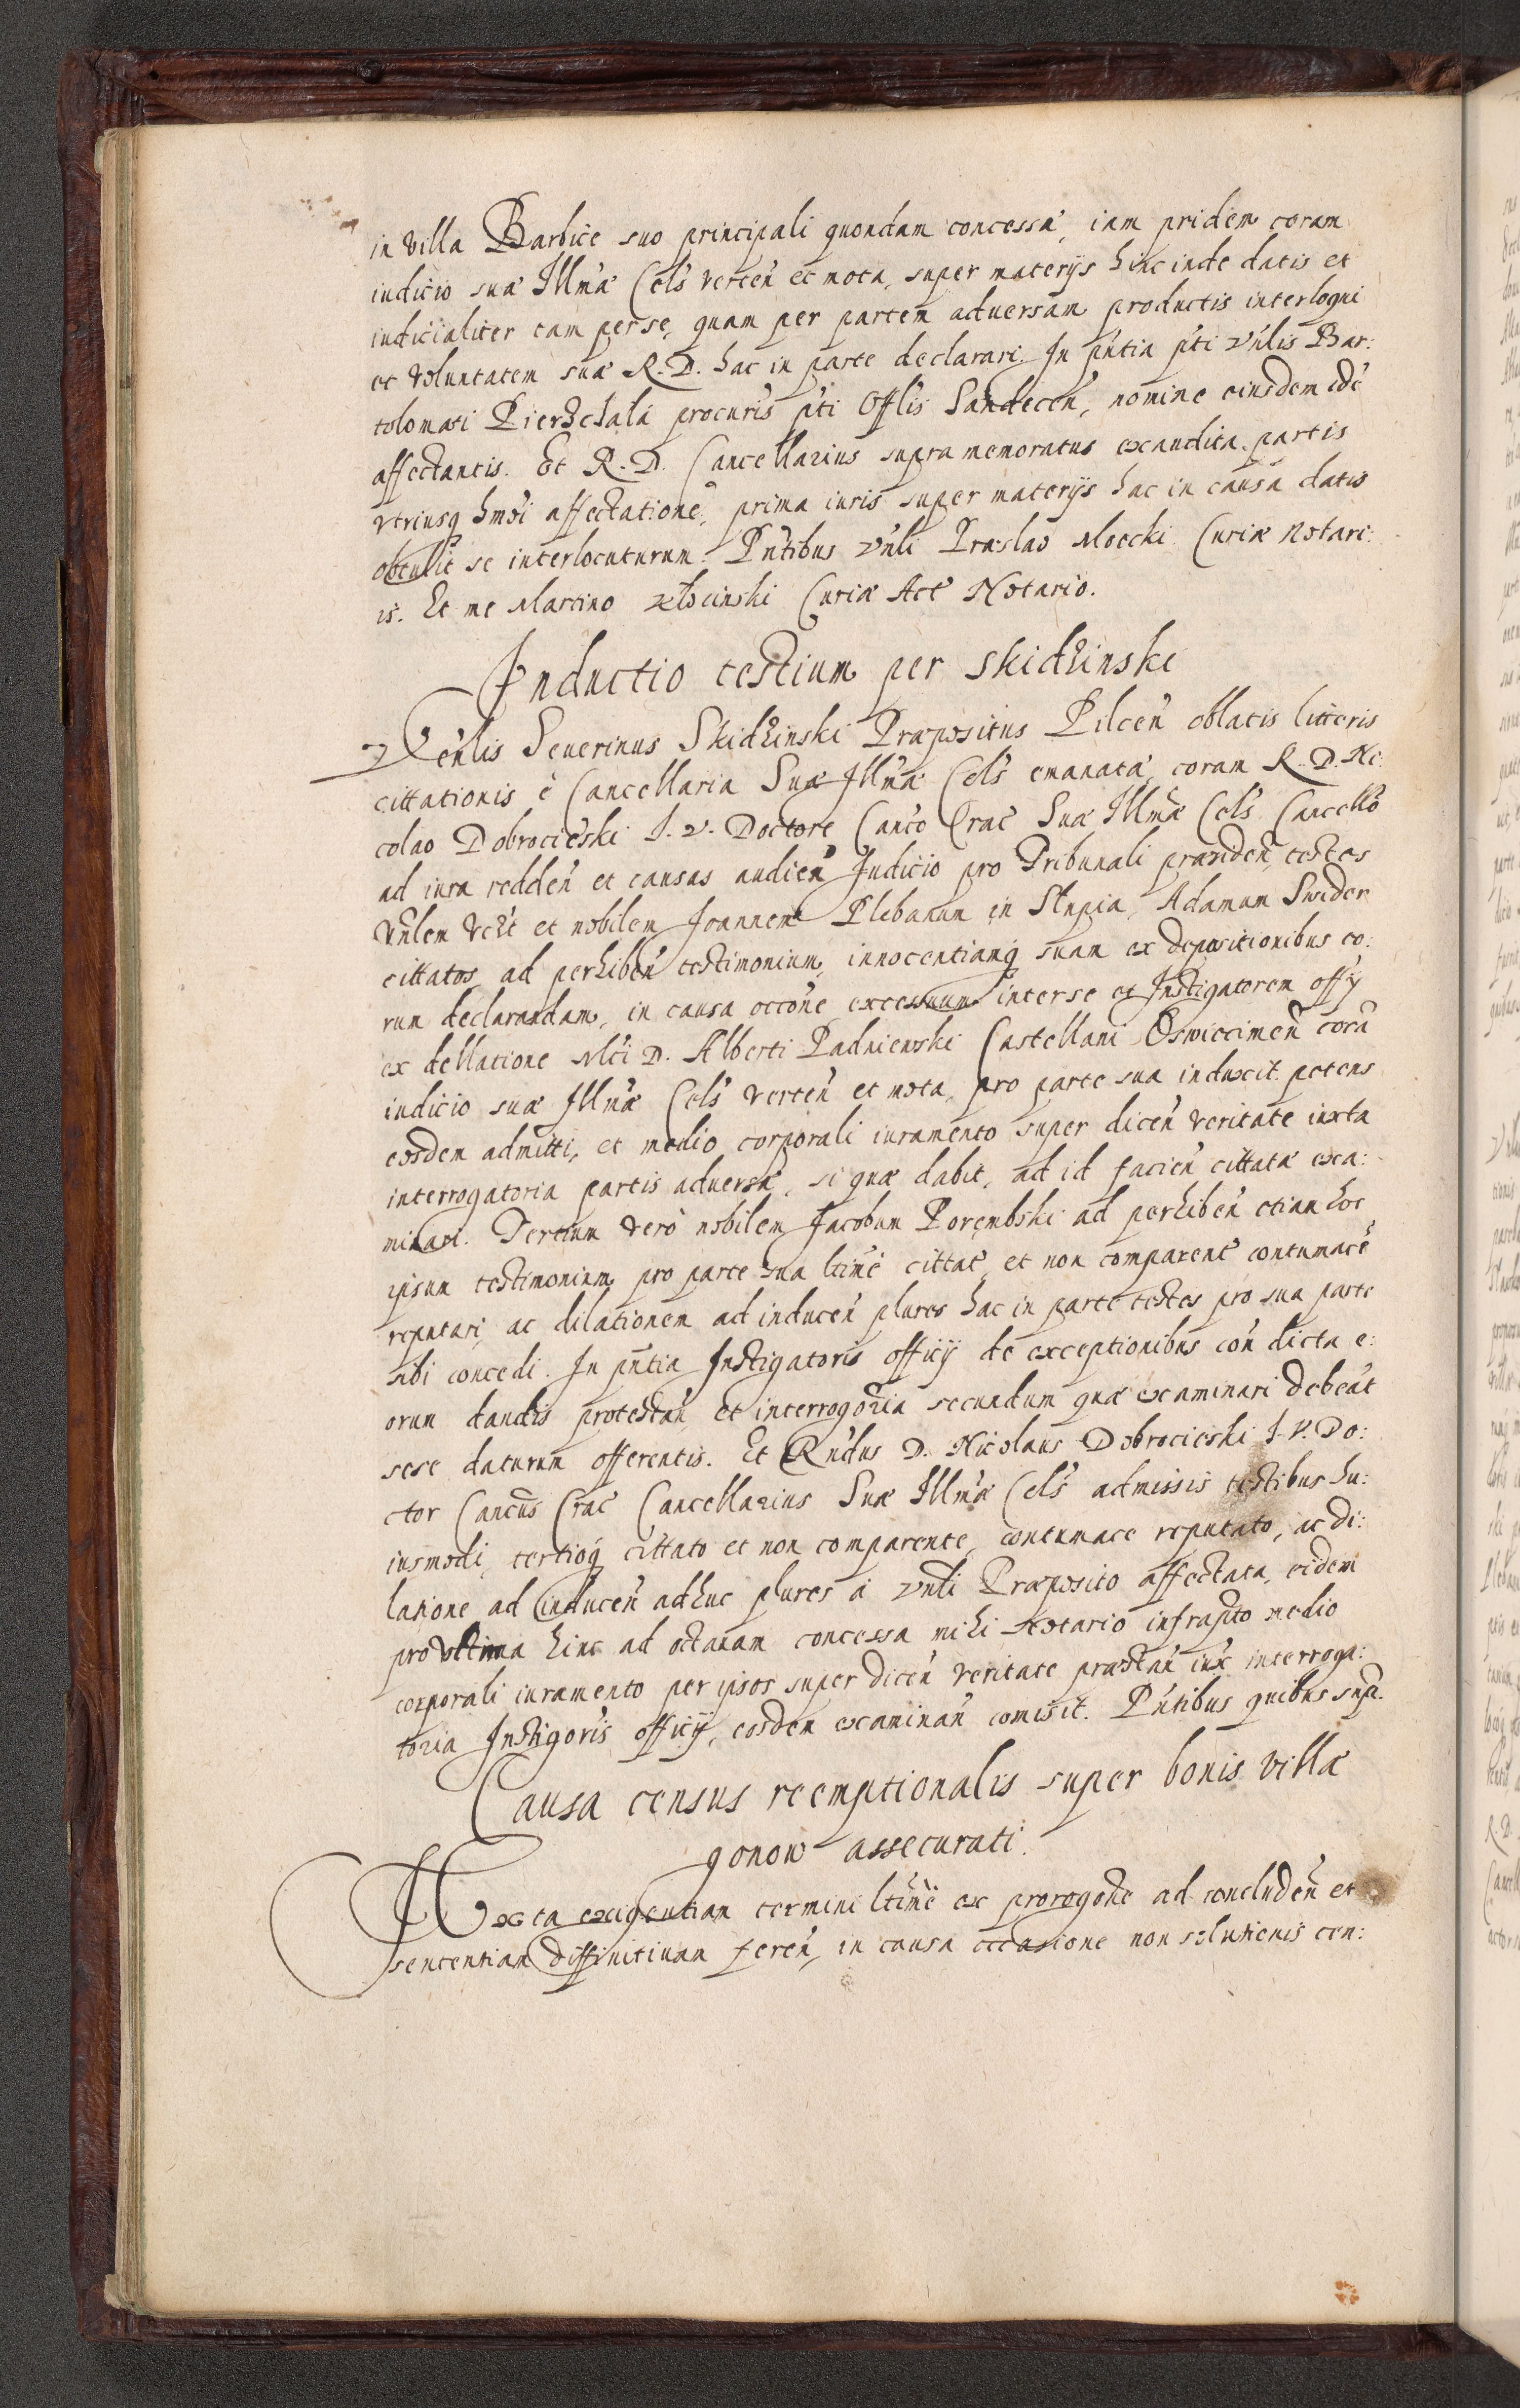 in villa Barbice suo principali quondam concessa, iam pridem coram
iudicio suæ Illmæ Cels verteń et nota, super materijs hinc inde datis et
iudicialiter tam per se, quam per partem aduersam productis interloqui
et voluntatem suæ R. D. hac in parte declarari. In pńtia pti vńlis Bar:
tolomæi Pierzchala procuris pti Offlis Sandeceń, nomine eiusdem idē
affectantis. Et R. D. Cancellarius supra memoratus exaudita partis
vtriusq hmōi affectatione, prima iuris super materijs hac in causa datis
obtulit se interlocuturum. Pntibus vńli Præslao Mocki Curiæ Notari:
is. Et me Martino Curiæ Act Notario.
Inductio testium per Skidzinski
Venlis Seuerinus Skidzinski Præpositus Pilceń oblatis litteris
cittationis è Cancellaria Suæ Illmæ Cels emanatæ, coram R. D. Ni:
colao Dobrocieski I. V. Doctore Canco Crac Suæ Illmæ Cels Cancello
ad iura reddeń et causas audień Iudicio pro Tribunali præsideń, testes
Vńlem et nobilem Joannem Plebanum in Slupia, Adamum Swider
cittatos ad perhibeń testimonium, innocentiamq suam ex depositionibus eo:
rum declarandam, in causa occōne excessuum inter se et Instigatorem offy
ex dellatione Mci D. Alberti Padniewski Castellani Oswiecimeń corā
iudicio suæ Illmæ Cels verteń et nota, pro parte sua induxit petens
eosdem admitti, et medio corporali iuramento super diceń veritate iuxta
interrogatoria partis aduersæ, si quæ dabit, ad id facień cittatæ exa:
minari. Tertium verò nobilem Jacobum Porembski ad perhibeń etiam hoc
ipsum testimonium pro parte sua ltime cittat, et non comparent contumacē
reputari, ac dilationem ad induceń plures hac in parte testes pro sua parte
sibi concedi. In pńtia Instigatoris officij de exceptionibus con dicta e:
orum dandis protestań et interrogōria secundum quæ examinari debeāt
sese daturum offerentis. Et Rńdus D. Nicolaus Dobrocieski I. V. Do:
ctor Cancus Crac Cancellarius Suæ Illmæ Cels admissis testibus hu:
iusmodi, tertioq cittato et non comparente, contumace reputato, ac di:
latione ad induceń adhuc plures à vnli Præposito affectata, eidem
pro vltima hinc ad octauam concessa mihi Notario infrapto medio
corporali iuramento per ipsos super diceń veritate præstań iux interroga:
toria Instigoris officij, eosdem examinań comisit. Pntibus quibus supr.
Causa census reemptionalis super bonis villæ
gonow assecurati.
Iuxta exigentiam termini ltime ex prorogōne ad concludeń et
sententiam diffinitiuam fereń, in causa occasione non solutionis cen: